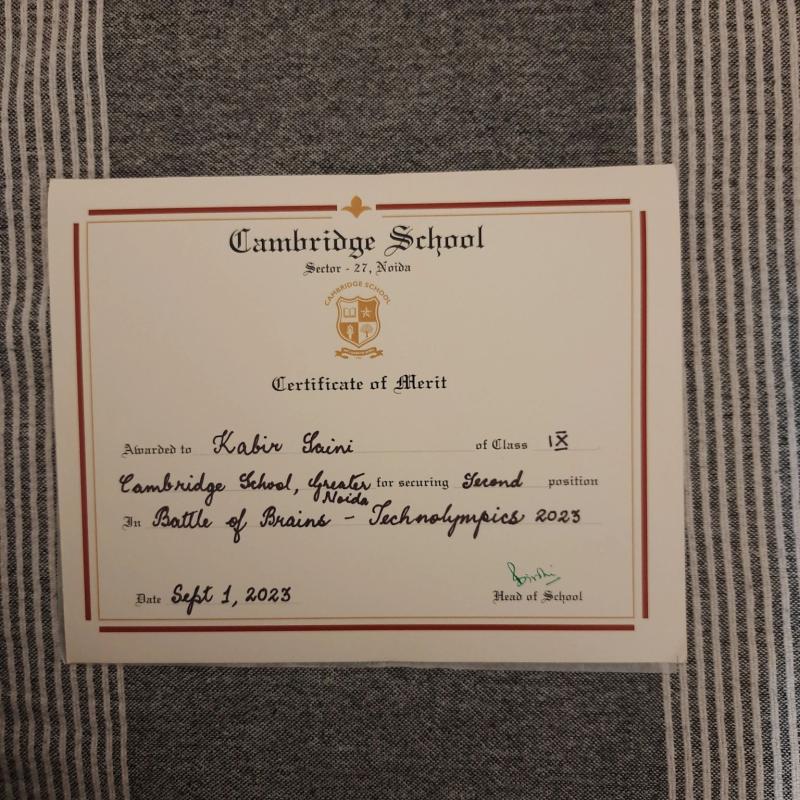 Cambridge School
Sector - 27, Noida
CAMBRIDGE SCHOOL
Certificate of Merit
Awarded to Kabir Saini of Class IX
Cambridge School, Greater Noida for securing Second position
In Battle of Brains - Technolympics 2023
Date Sept 1, 2023
Head of School